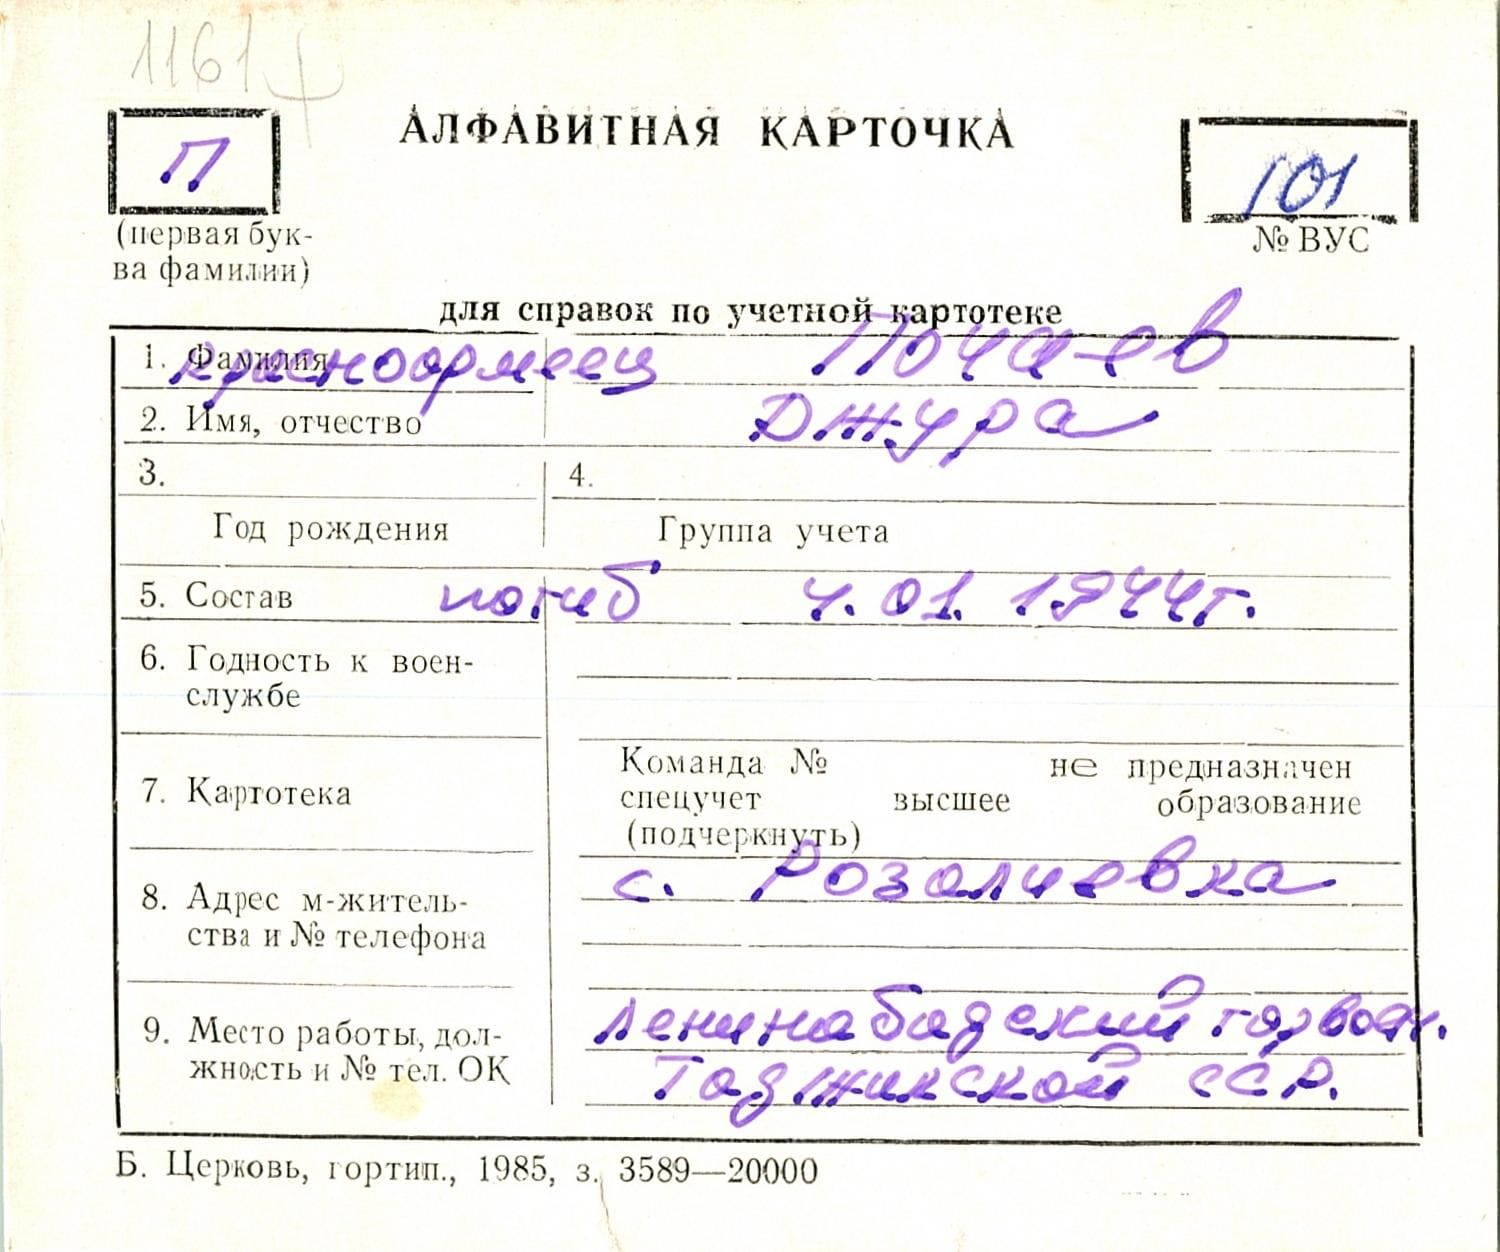 1161
АЛФАВИТНАЯ КАРТОЧКА
П
101
(первая бук-
ва фамилии)
№ ВУС
для справок по учетной картотеке
1. Фамилия красноармеец Почаев
2. Имя, отчество Джура
3. 4.
Год рождения Группа учета
5. Состав погиб 4.01.1944г.
6. Годность к воен-
службе
7. Картотека
Команда № не предназначен
спецучет высшее образование
(подчеркнуть)
8. Адрес м-житель-
ства и № телефона
с. Розалиевка
9. Место работы, дол-
жность и № тел. ОК
Ленинабадский горвоен.
Таджикской ССР.
Б. Церковь, гортип., 1985, з. 3589—20000